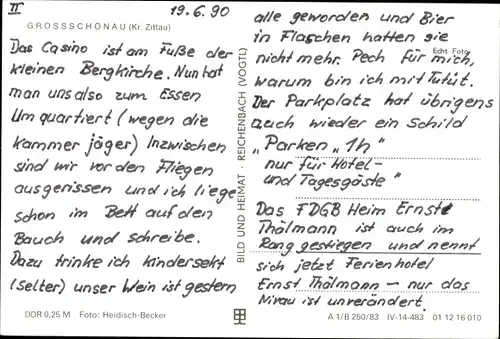 II
19.6.90
GROSSSCHÖNAU (Kr. Zittau)
Das Casino ist am Fuße der
kleinen Bergkirche. Nun hat
man uns also zum Essen
Um quartiert (wegen die
kammer jäger) Inzwischen
sind wir vor den Fliegen
ausgerissen und ich liege
schon im Bett auf den
Bauch und schreibe.
Dazu trinke ich kindersekt
(Selter) unser Wein ist gestern
DDR 0,25 M Foto: Heidisch-Becker
BILD UND HEIMAT · REICHENBACH (VOGTL)
alle geworden und Bier
in Flaschen hatten sie
nicht mehr. Pech für mich,
Echt Foto
warum bin ich mit Tutút.
Der Parkplatz hat übrigens
auch wieder ein Schild
„Parken „1h"
nur für Hotel-
und Tagesgäste"
Das FDGB Heim Ernst
Thälmann ist auch im
Rang gestiegen und nennt
sich jetzt Ferienhotel
Ernst Thälmann – nur das
Nivau ist unverändert.
A 1/B 250/83 IV-14-483 01 12 16 010